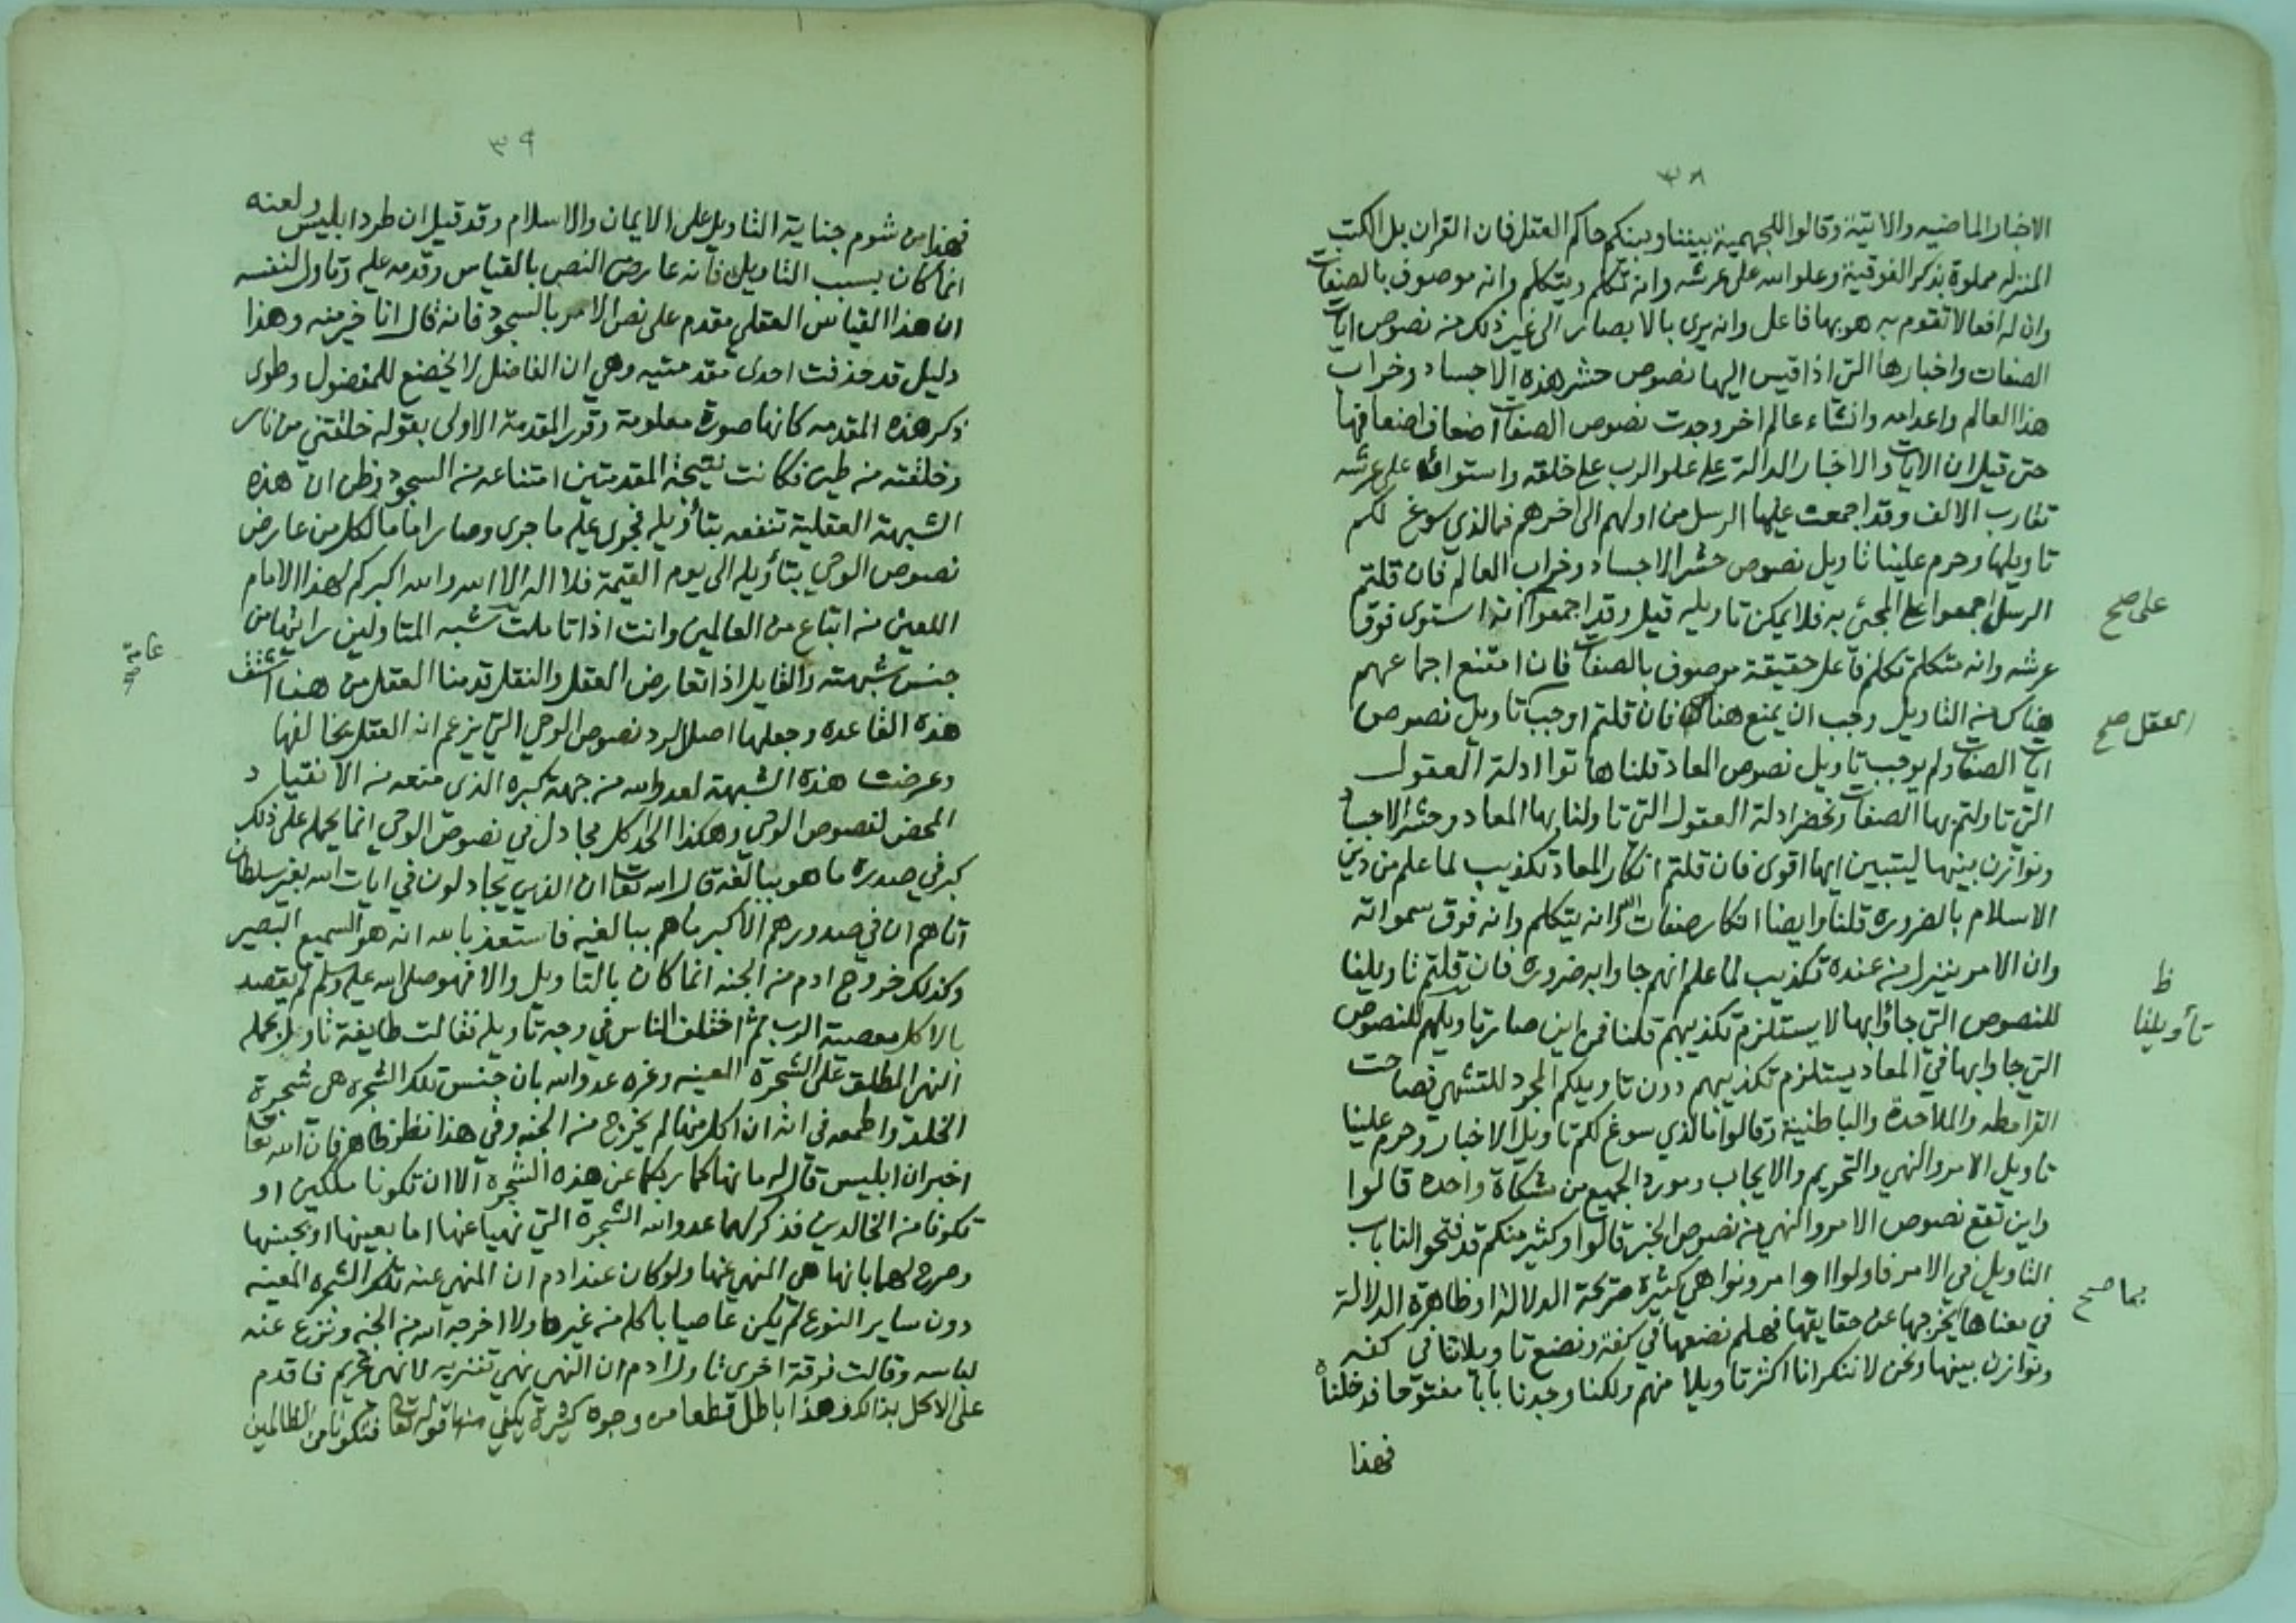 ٣٨
الاخبار الماضيه والاتية وقالوا للجهمية بيننا وبينكم حاكم العقل فان القران بل الكتب
المنزله مملوة بذكر الفوقية وعلو الله على عرشه وانه تكلم ويتكلم وانه موصوف بالصفات
وان له افعالا تقوم به هو بها فاعل وانه يرى بالابصار الى غير ذلك من نصوص ايات
الصفات واخبارها التي اذا قيس اليها نصوص حشر هذه الاجساد وخراب
هذا العالم واعدامه وانشاء عالم اخر وجدت نصوص الصفات اضعاف اضعافها
حتى قيل ان الايات والاخبار الدالة على علو الرب على خلقه واستوائه على عرشه
تقارب الالف وقد اجمعت عليها الرسل من اولهم الى اخرهم فما الذي سوغ لكم
تاويلها وحرم علينا تاويل نصوص حشر الاجساد وخراب العالم فان قلتم
الرسل اجمعوا على المجئ به فلا يمكن تاويله قيل وقد اجمعوا انه استوى فوق
على صح
عرشه وانه متكلم تكلم فاعل حقيقة موصوف بالصفات فان امتنع اجماعهم
هناك من التاويل وجب ان يمنع هناك فان قلتم اوجب تاويل نصوص
العقل صح
ايات الصفات ولم يوجب تاويل نصوص المعاد قلنا هاتوا ادلة العقول
التي تاولتم بها الصفات ونحضر ادلة العقول التي تاولنا بها المعاد وحشر الاجساد
ونوازن بينها ليتبين ايها اقوى فان قلتم انكار المعاد تكذيب لما علم من دين
الاسلام بالضرورة قلنا وايضا انكار صفات الله وانه يتكلم وانه فوق سمواته
وان الامر ينزل من عنده تكذيب لما علم انهم جاوا به ضرورة فان قلتم تاويلنا
ظ
تأويلنا
للنصوص التي جاؤا بها لا يستلزم تكذيبهم قلنا فمن اين صار تاويلهم للنصوص
التي جاوا بها في المعاد يستلزم تكذيبهم دون تاويلكم المجرد للتشهي فصاحت
القرامطه والملاحدة والباطنية وقالوا ما الذي سوغ لكم تاويل الاخبار وحرم علينا
تاويل الامر والنهي والتحريم والايجاب ومورد الجميع من مشكاة واحده قالوا
واين تقع نصوص الامر والنهي من نصوص الخبر قالوا وكثير منكم قد فتحوا لنا باب
التاويل في الامر فاولوا اوامر ونواهي كثيرة صريحة الدلالة او ظاهرة الدلالة
في معناها يخرجها عن حقايقها فهلم نضعها في كفة ونضع تاويلاتنا في كفه
بما صح
ونوازن بينها ونحن لا ننكر انا اكثر تاويلا منهم ولكنا وجدنا بابا مفتوحا فدخلناه
فهذا
٣٩
فهذا من شوم جناية التاويل على الايمان والاسلام وقد قيل ان طرد ابليس ولعنه
انما كان بسبب التاويل فانه عارض النص بالقياس وقدمه عليه وتاول لنفسه
ان هذا القياس العقلي مقدم على نص الامر بالسجود فانه قال انا خير منه وهذا
دليل قد حذفت احدى مقدمتيه وهي ان الفاضل لا يخضع للمفضول وطوى
ذكر هذه المقدمه كانها صورة معلومة وقرر المقدمة الاولى بقوله خلقتني من نار
وخلقته من طين فكانت نتيجة المقدمتين امتناعه من السجود وظن ان هذه
الشبهة العقلية تنفعه بتأويله فجرى عليه ما جرى وصار اماما لكل من عارض
نصوص الوحي بتأويله الى يوم القيمة فلا اله الا الله والله اكبر كم لهذا الامام
اللعين من اتباع من العالمين وانت اذا تاملت شبه المتاولين رايتها من
جنس شبهته والقايل اذا تعارض العقل والنقل قدمنا العقل من هنا اشتق
عامة
صح
هذه القاعده وجعلها اصلا لرد نصوص الوحي التي يزعم ان العقل يخالفها
وعرضت هذه الشبهة لعدو الله من جهة كبره الذي منعه من الانقياد
المحض لنصوص الوحي وهكذا الحد كل مجادل في نصوص الوحي انما يحمله على ذلك
كبر في صدره ما هو ببالغه قال الله تعا ان الذين يجادلون في ايات الله بغير سلطان
اتاهم ان في صدورهم الا كبر ما هم ببالغيه فاستعذ بالله انه هو السميع البصير
وكذلك خروج ادم من الجنه انما كان بالتاويل والا فهو صلى الله عليه وسلم لم يقصد
بالاكل معصية الرب ثم اختلف الناس في وجه تاويله فقالت طايفة تاول بحمله
النهي المطلق على الشجرة المعينه وغره عدو الله بان جنس تلك الشجره هي شجرة
الخلد واطمعه في انه ان اكل منها لم يخرج من الجنه وفي هذا نظر ظاهر فان الله تعا
اخبر ان ابليس قال له ما نهاكما ربكما عن هذه الشجره الا ان تكونا ملكين او
تكونا من الخالدين فذكر لهما عدو الله الشجرة التي نهيا عنها اما بعينها او بجنسها
وصرح لهما بانها هي المنهي عنها ولو كان عند ادم ان المنهي عنه تلك الشجره المعينه
دون ساير النوع لم يكن عاصيا باكله من غيرها ولا اخرجه الله من الجنه ونزع عنه
لباسه وقالت فرقة اخرى تاول ادم ان النهي نهي تنزيه لا نهي تحريم فاقدم
على الاكل بذالك وهذا باطل قطعا من وجوه كثيرة يكفي منها قوله تعا فتكونا من الظالمين